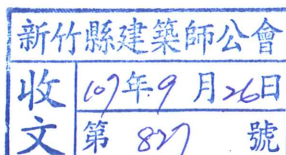 新竹縣建築師公會
收文
107年9月26日
第827號